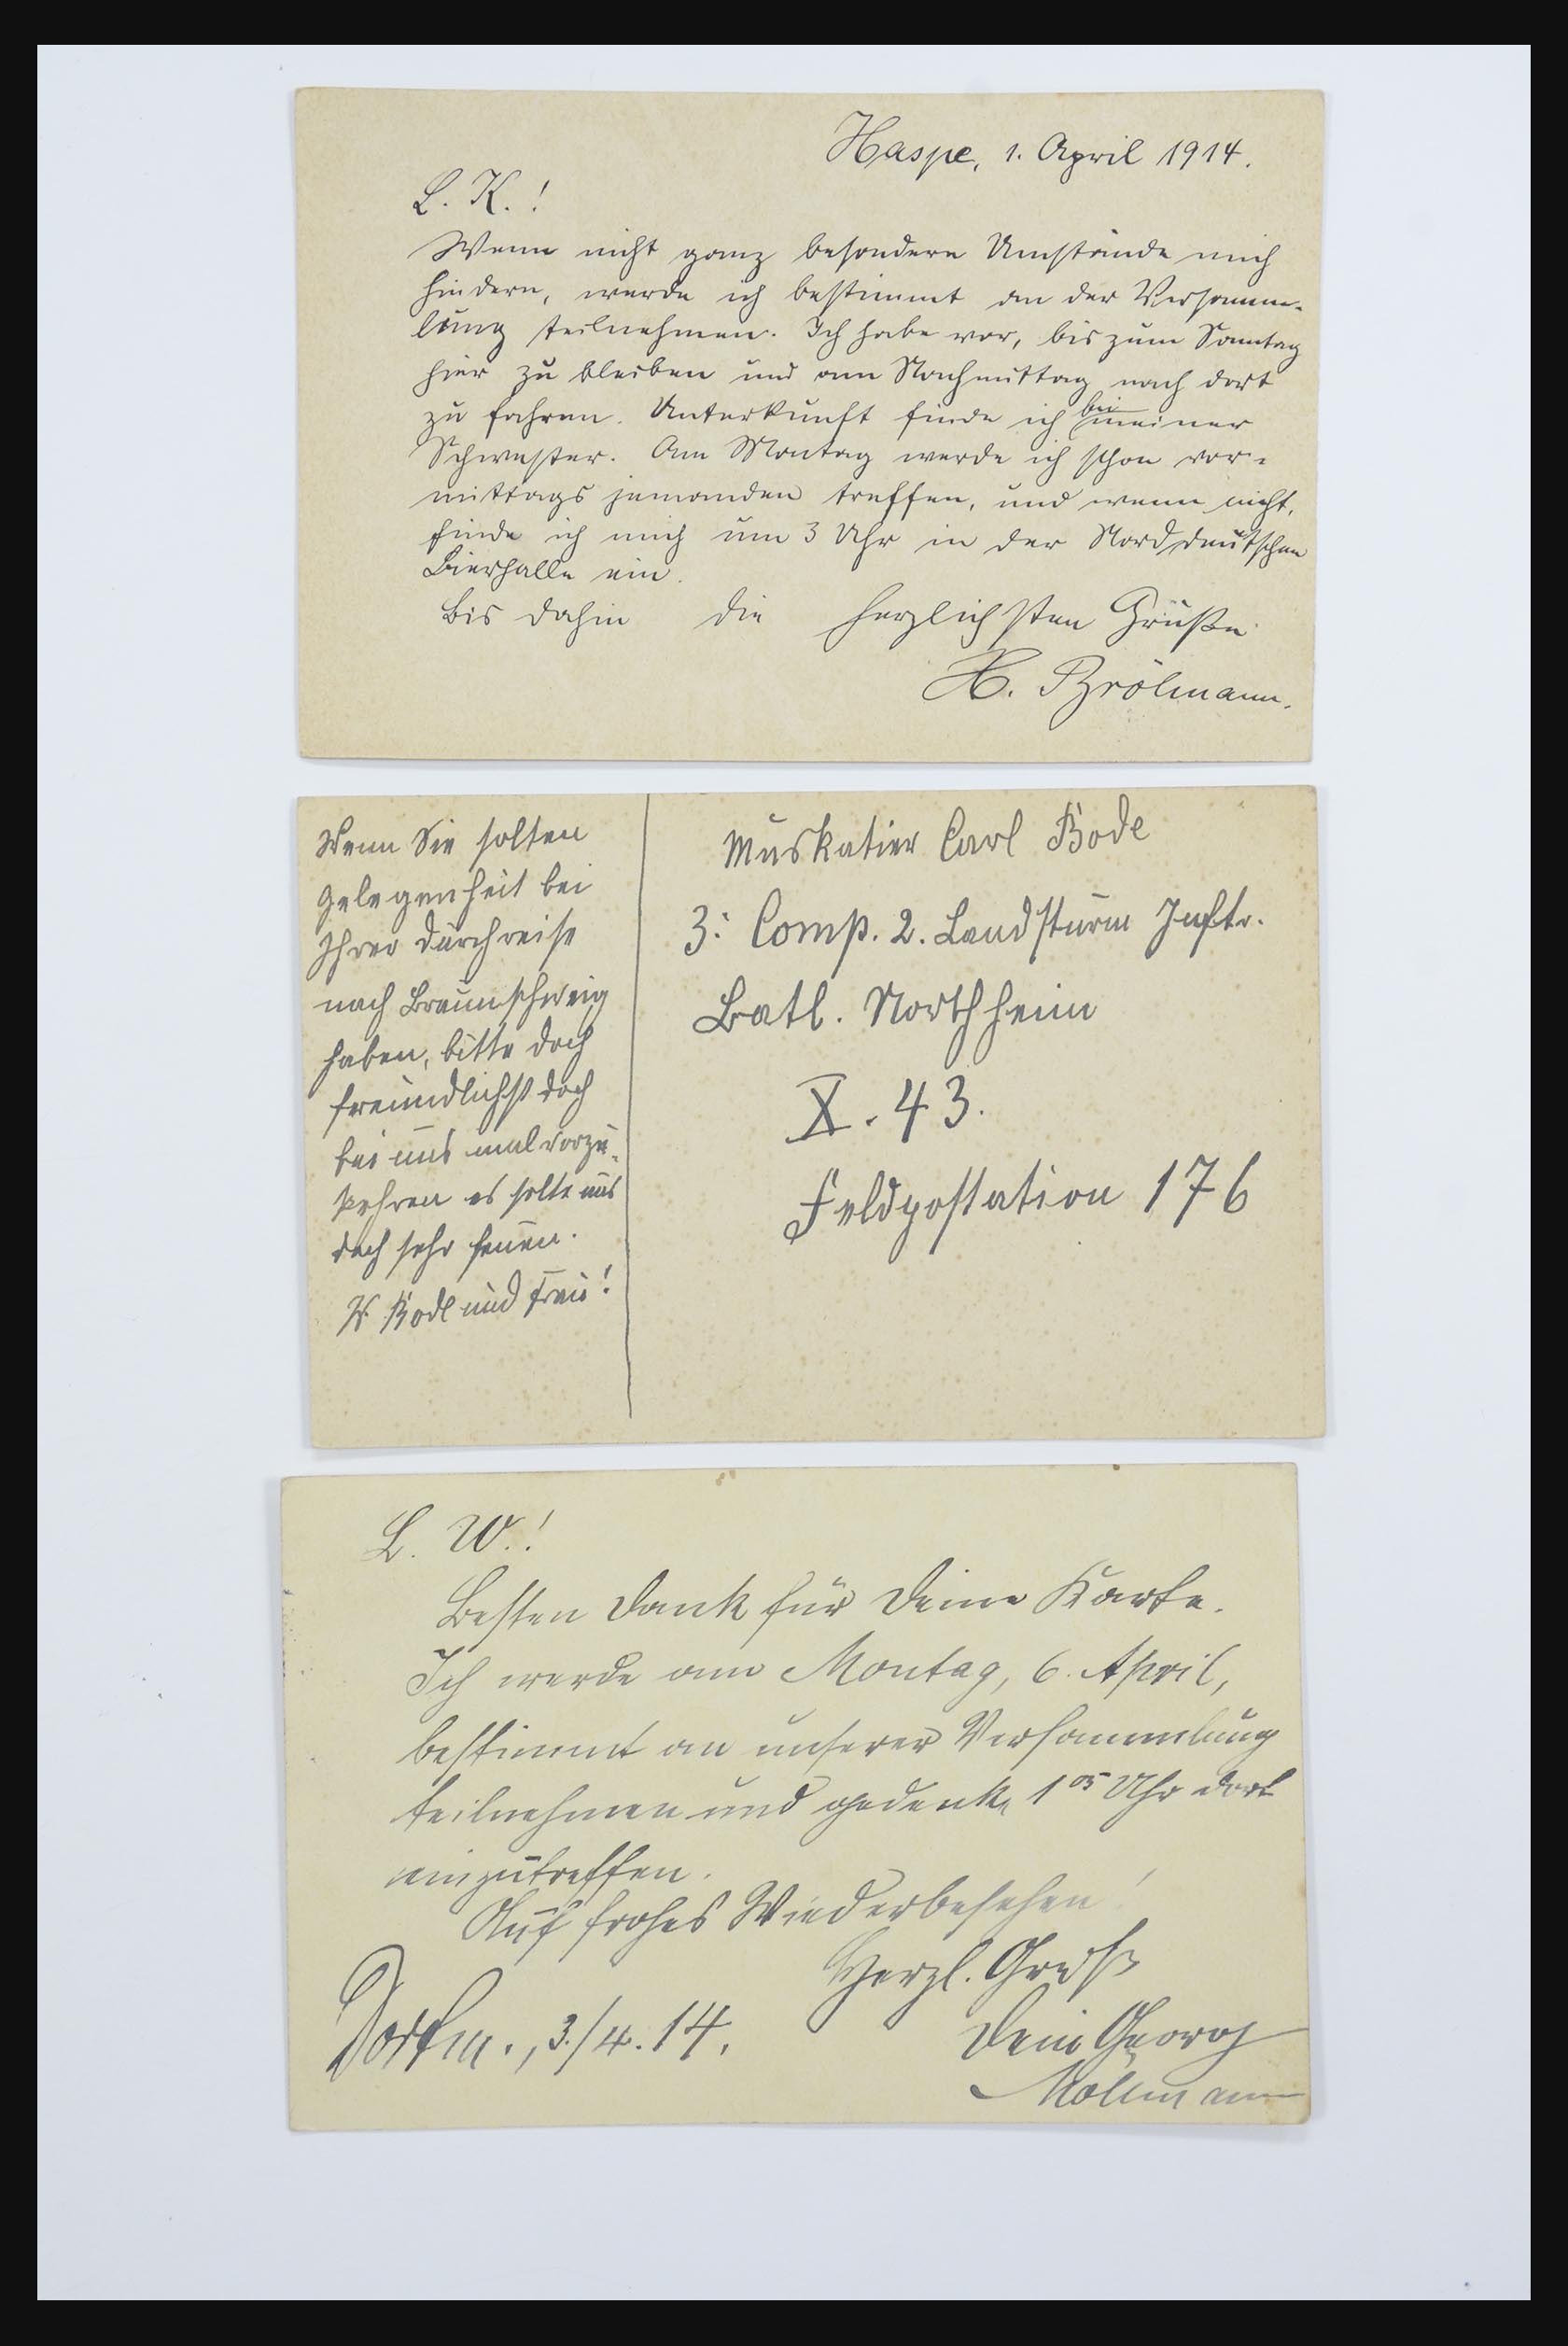 Haspe, 1. April 1914.
L. K.!
Wenn nicht ganz besondere Umstände mich
hindern, werde ich bestimmt an der Versamm-
lung teilnehmen. Ich habe vor, bis zum Sonntag
hier zu bleiben und am Nachmittag nach dort
zu fahren. Unterkunft finde ich bei meiner
Schwester. Am Montag werde ich schon vor-
mittags jemanden treffen, und wenn nicht,
finde ich mich um 3 Uhr in der Norddeutschen
Bierhalle ein.
Bis dahin die herzlichsten Grüße
H. Brölmann.
Wenn Sie solten
Gelegenheit bei
Ihrer Durchreise
nach Braunschweig
haben, bitte doch
freundlichst doch
bei uns mal vorzu-
kehren es solte uns
doch sehr freuen.
W. Bode und Frau!
Muskatier Carl Bode
3. Comp. 2. Landsturm Inftr.
Batl. Northheim
X. 43.
Feldpostation 176
L. W.!
Besten Dank für Deine Karte.
Ich werde am Montag, 6. April,
bestimmt an unserer Versammlung
teilnehmen und gedenke 1 05 Uhr dort
einzutreffen.
Auf frohes Wiederbesehen!
Herzl. Gruß
Dortm., 3./4. 14.
Dein Georg
Möllmann